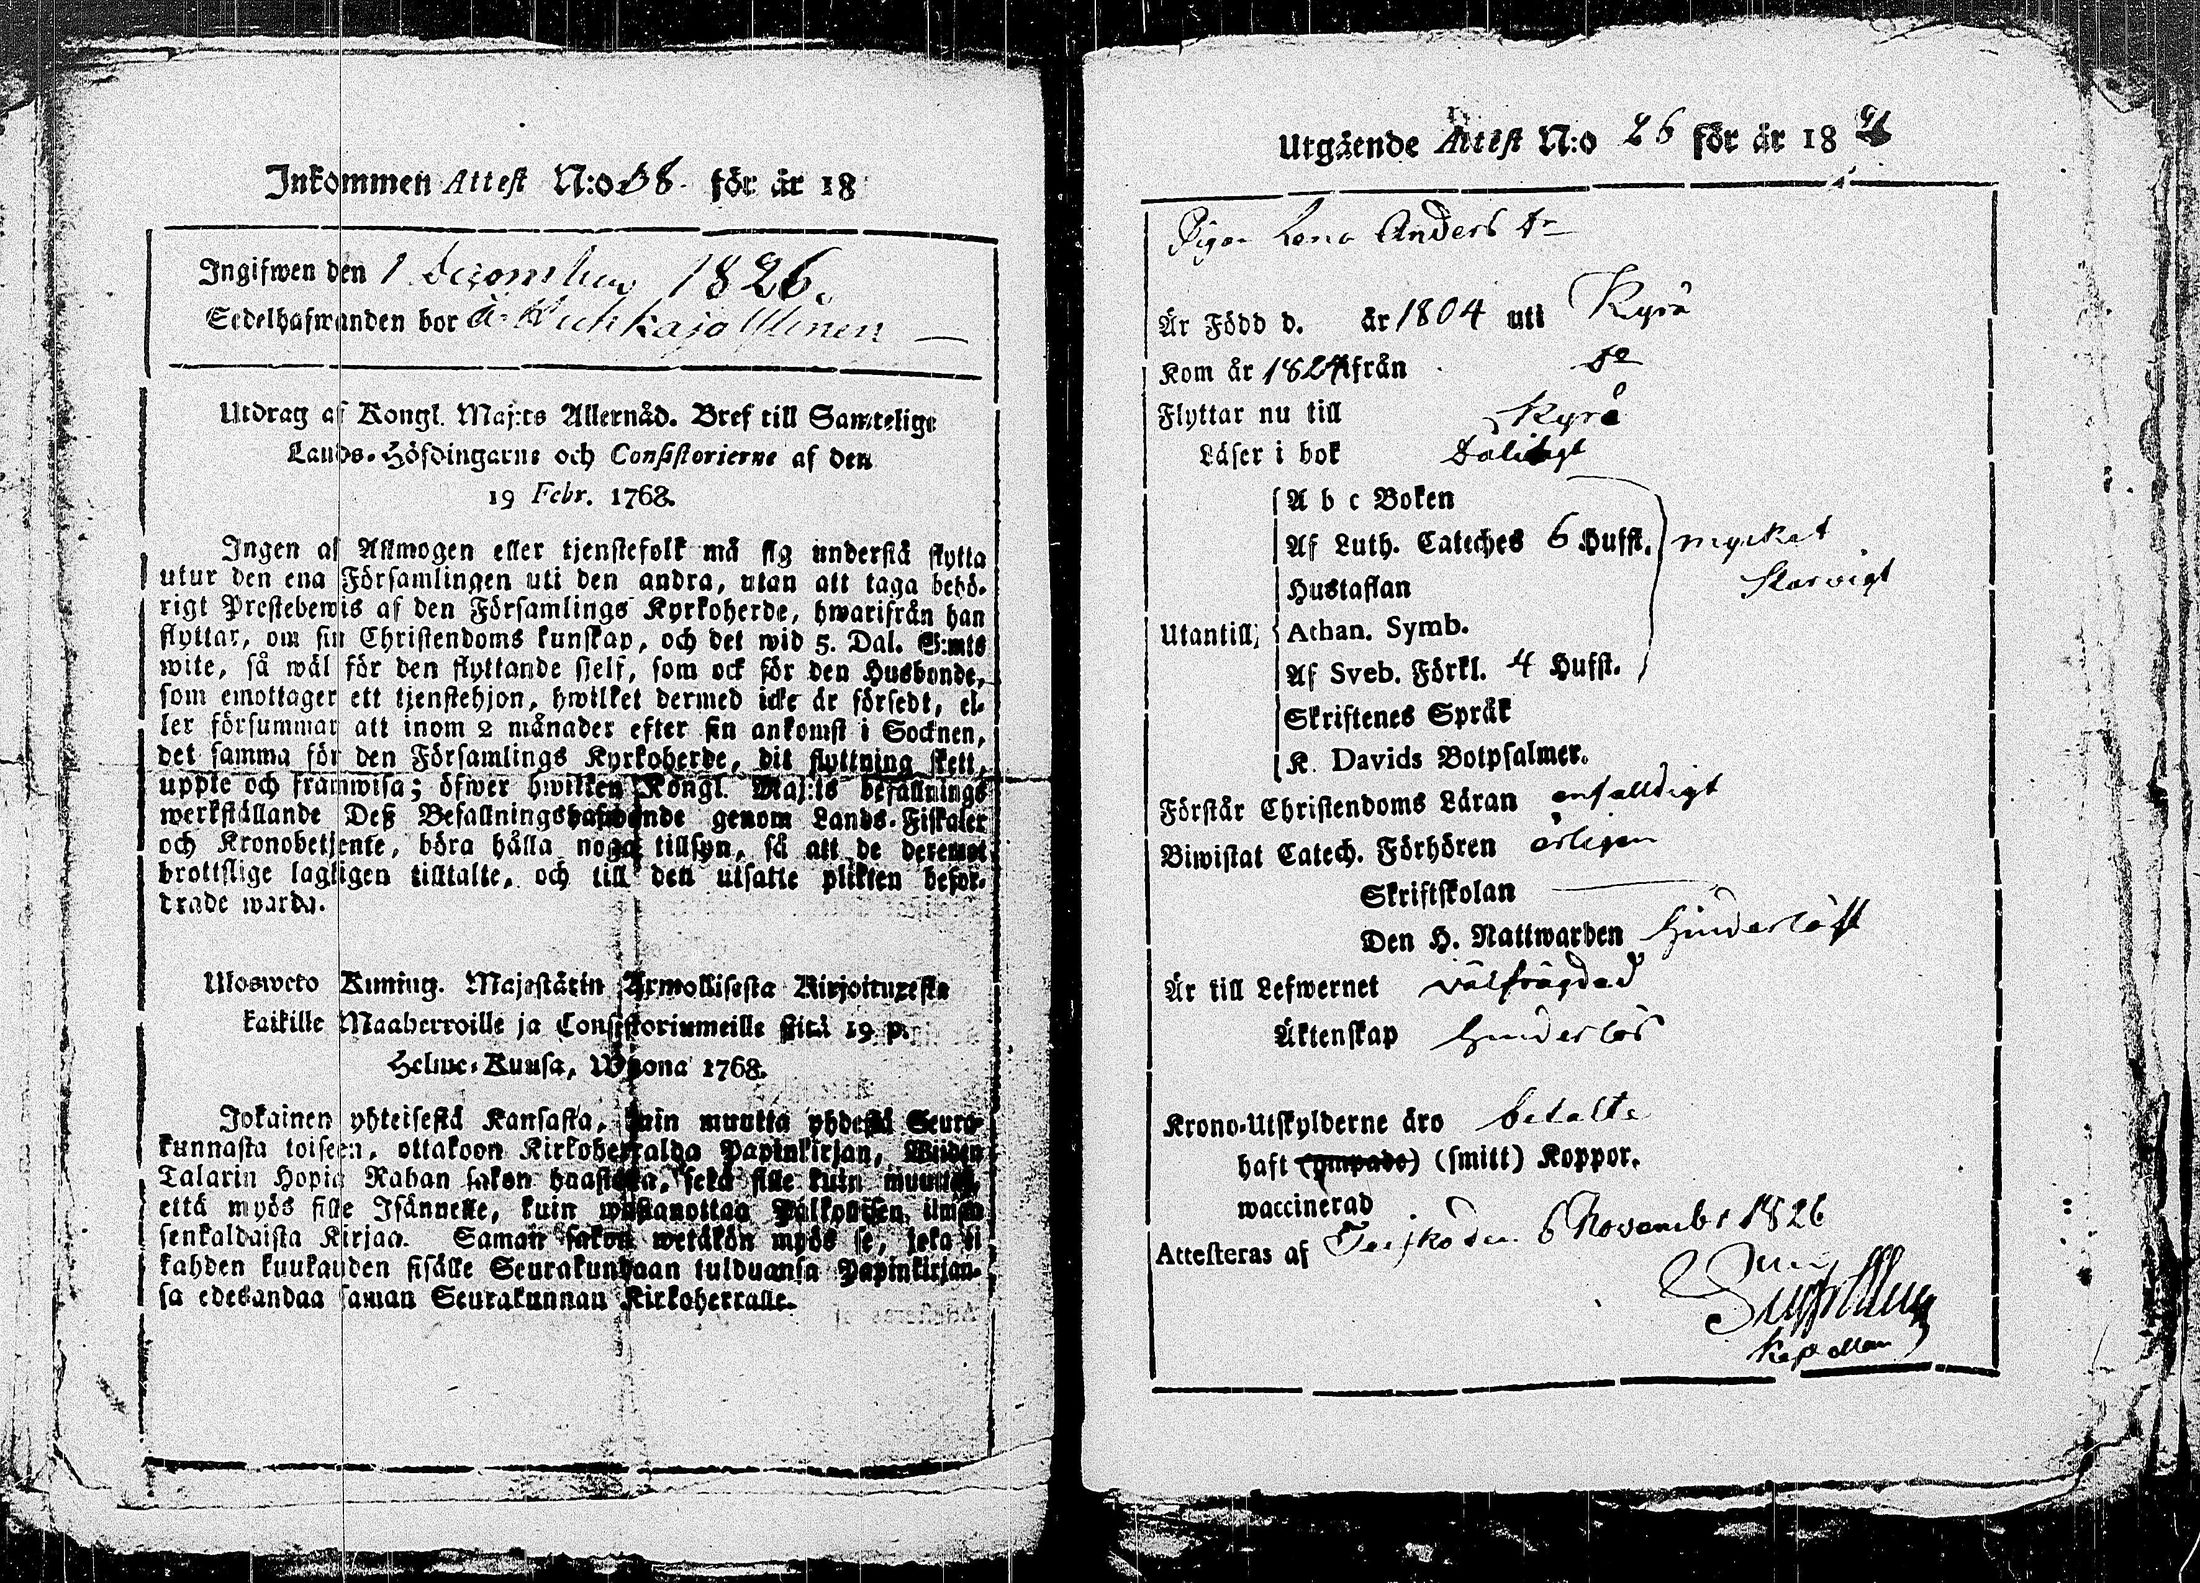 Inkommen Attest N:o 58. för år 18
Ingifwen den 1 December 1826.
Sedelhafwanden bor å
Utdrag af Kongl. Maj:ts Allernåd. Bref till Samtelige
Lands-Höfdingarne och Consistorierne af den
19 Febr. 1768.
Ingen af Allmogen eller tjenstefolk må sig understå flytta
utur den ena Församlingen uti den andra, utan att taga behö-
rigt Prestebewis af den Församlings Kyrkoherde, hwarifrån han
flyttar, om sin Christendoms kunskap, och det wid 5. Dal. S:mts
wite, så wäl för den flyttande sielf, som ock för den Husbonde,
som emottager ett tjenstehjon, hwilket dermed icke är försedt, el-
ler försummar att inom 2 månader efter sin ankomst i Socknen,
det samma för den Församlings Kyrkoherde, dit flyttning skett,
uppte och framwisa; öfwer hwilken Kongl. Maj:ts befallnings
werkställande Deß Befallningshafwande genom Lands-Fiskaler
och Kronobetjente, böra hålla noga tillsyn, så att de deremot
brottslige lagligen tilltalte, och till den utsatte plikten befor-
drade warda.
Ulosweto Kuning. Majestätin Armollisesta Kirjoituxesta
kaikille Maaherroille ja Consistoriumeille siitä 19 p.
Helme-Kuusa, Wuona 1768.
Jokainen yhteisestä Kansasta, kuin muutta yhdestä Seura-
kunnasta toiseen, ottakoon Kirkoherralda Papinkirjan, Wiiden
Talarin Hopia Rahan sakon haastolla, sekä sille kuin muuttaa,
että myös sille Isännelle, kuin wastanottaa Palkollisen ilman
senkaldaista Kirjaa. Saman sakon wetäkön myös se, joka ei
kahden kuukauden sisälle Seurakundaan tulduansa Papinkirjan-
sa edesandaa saman Seurakunnan Kirkoherralle.
Utgående Attest N:o 26 för år 18
Pigan Lena Anders dr
Är Född d. år 1804 uti Kyrö
Kom år 1824 ifrån do
Flyttar nu till Kyrö
Läser i bok
A b c Boken
Af Luth. Cateches 6 Hufst. mycket
Hustaflan
Utantill; Athan. Symb.
Af Sveb. Förkl. 4 Hufst.
Skriftenes Språk
K. Davids Botpsalmer.
Förstår Christendoms Läran enfalldigt
Biwistat Catech. Förhören årligen
Skriftskolan
Den H. Nattwarden hinderlöst
Är till Lefwernet välfrägdad
Äktenskap hinderlös
Krono-Utskylderne äro betalte
haft (ympade) (smitt) Koppor.
waccinerad
Attesteras af Teisko den 6 November 1826
Kapellan